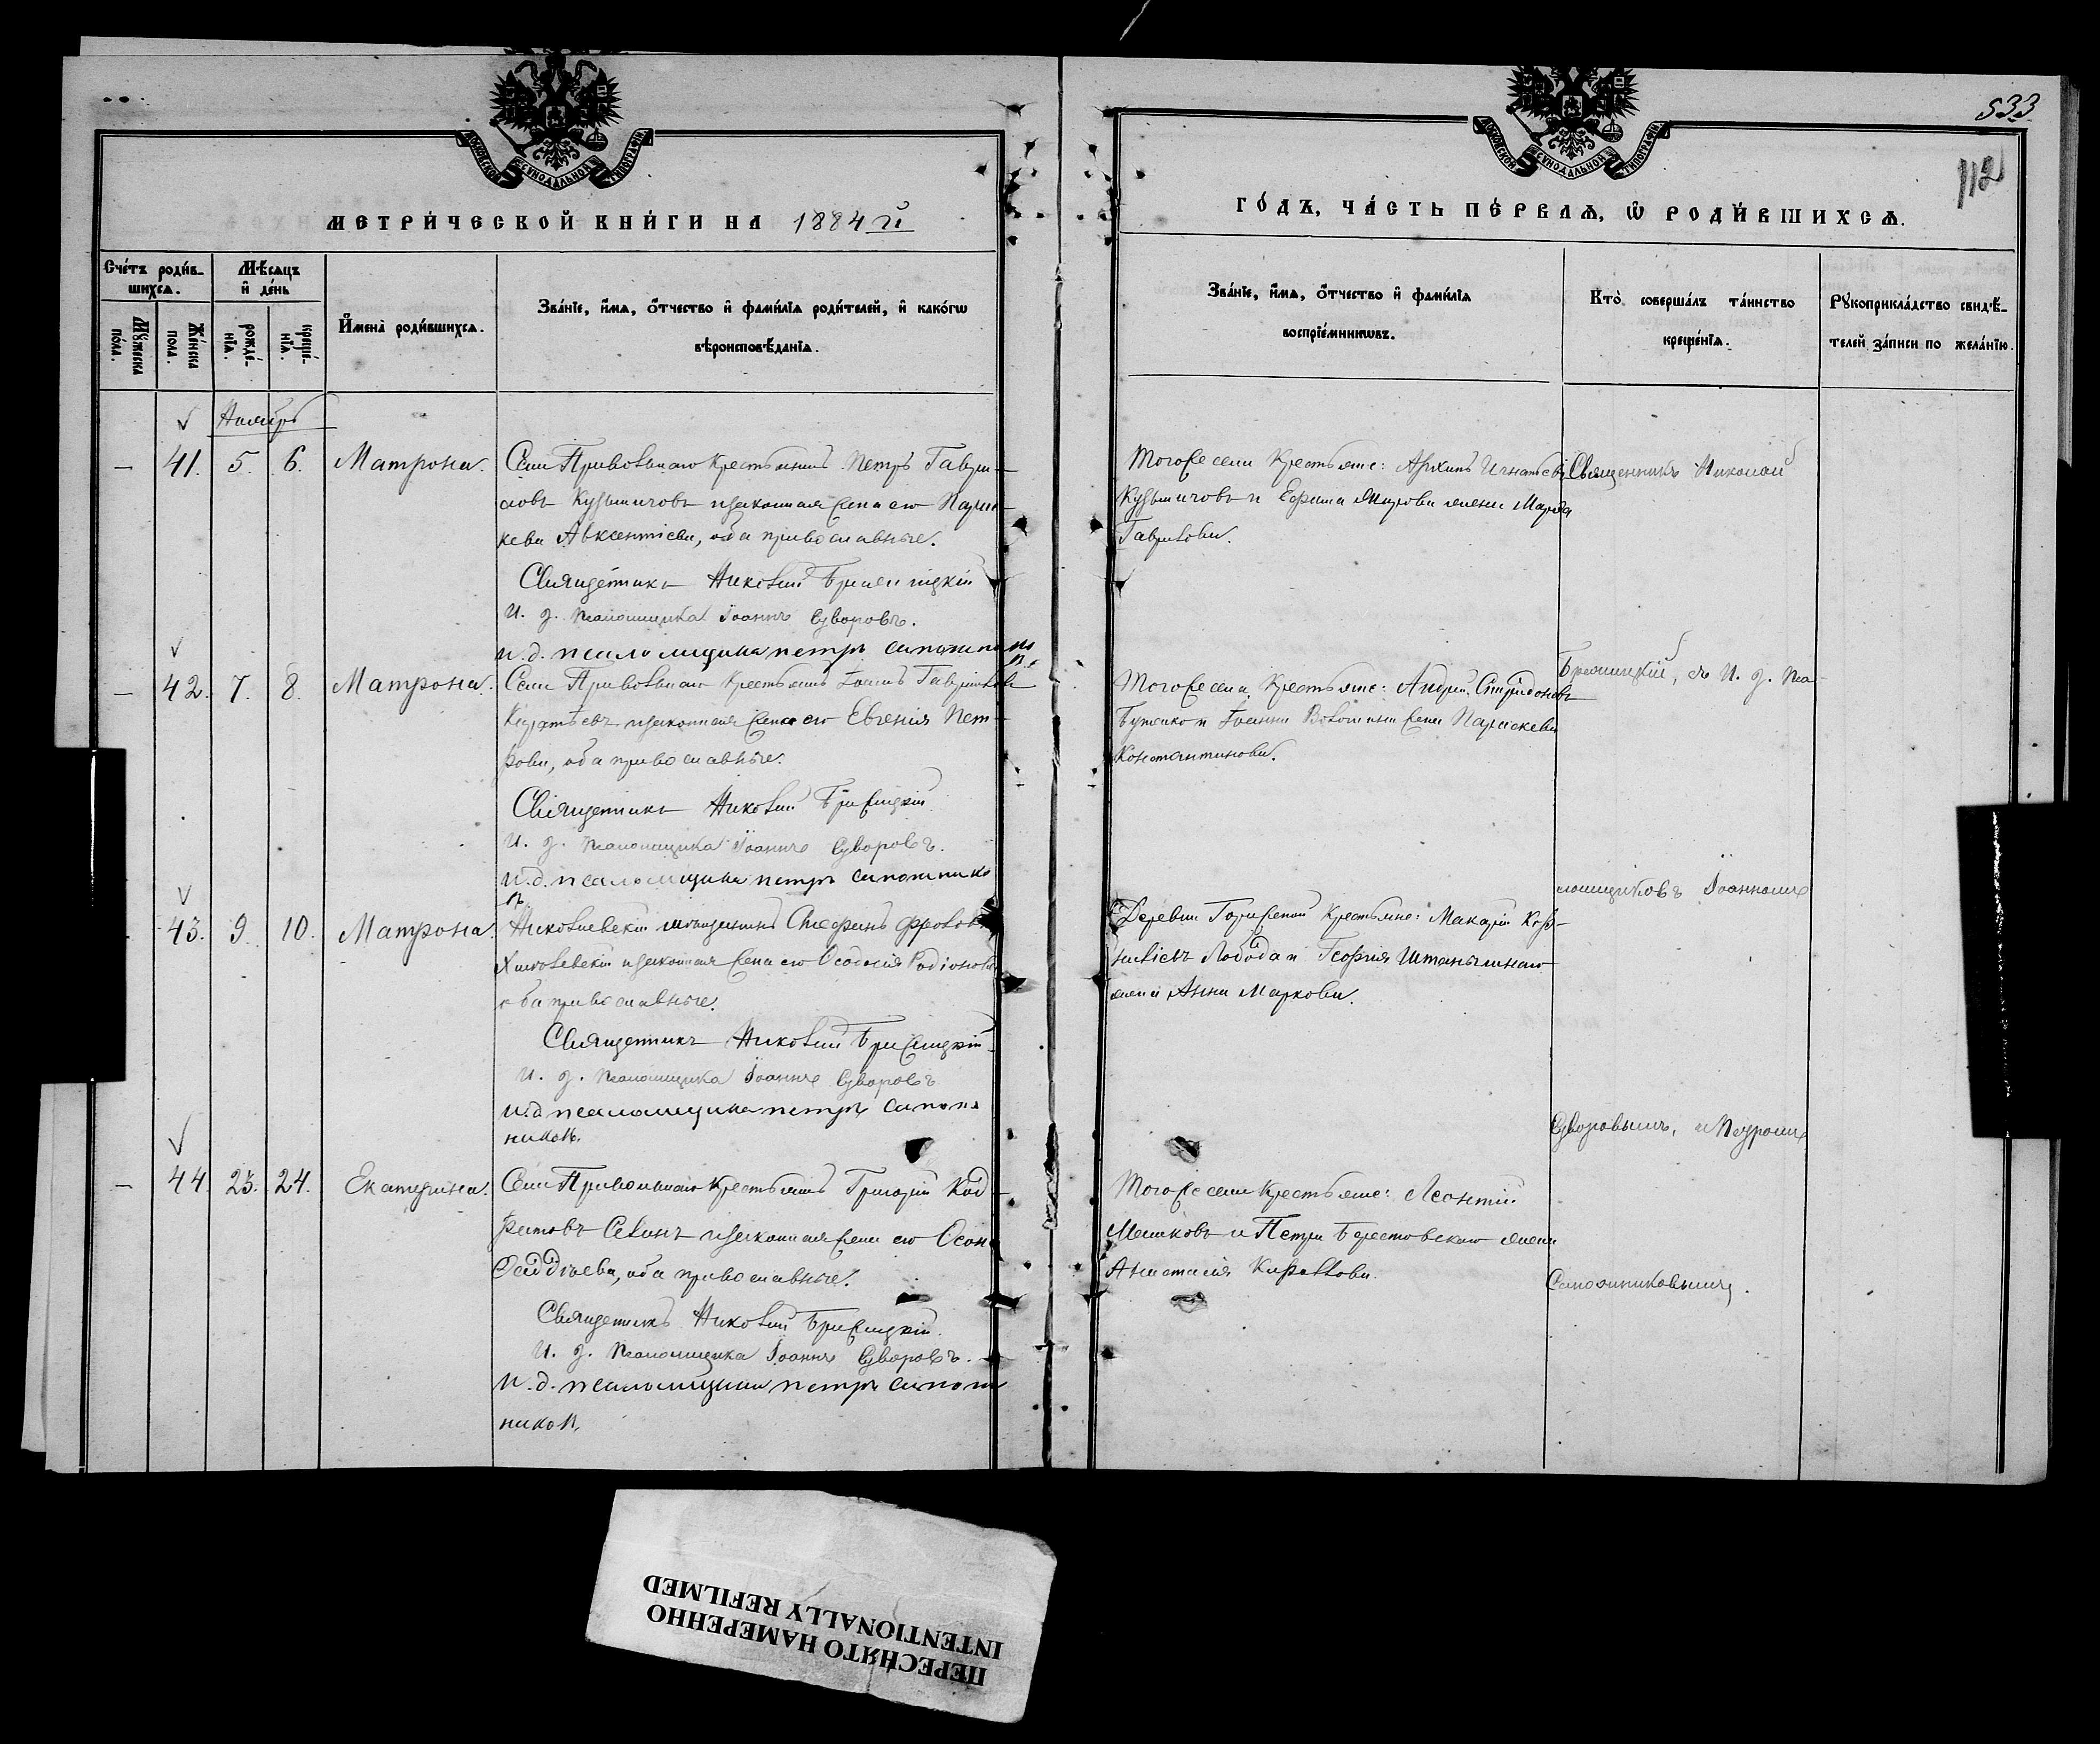 533
112
МЕТРИ́ЧЕСКОЙ КНИ́ГИ НА 1884 й
ГО́ДЪ, ЧА́СТЬ ПЕ́РВАѦ, Ѿ РОДИ́ВШИХСѦ.
МОСКОВСКОЙ СѴНОДАЛЬНОЙ ТИПОГРАФІИ
МОСКОВСКОЙ СѴНОДАЛЬНОЙ ТИПОГРАФІИ
Сче́тъ роди́в-
шихсѧ.
Мꙋ́жеска пола.
Же́нска пола.
Мѣ́сѧцъ
и҆ де́нь
рожде́-
нїѧ.
креще́-
нїѧ.
И҆мена̀ роди́вшихсѧ.
Зва́нїе, и҆́мѧ, ѻ҆́тчество и҆ фами́лїѧ роди́телей, и҆ како́гѡ
вѣроисповѣ́данїѧ.
Зва́нїе, и҆́мѧ, ѻ҆́тчество и҆ фами́лїѧ
воспрїе́мникѡвъ.
Кто̀ соверша́лъ та́инство
креще́нїѧ.
Рꙋкоприкла́дство свидѣ́-
телей за́писи по жела́нїю.
Ноябрь
— 41. 5. 6. Матрона.
Села Привольнаго крестьянинъ Петръ Гаври-
ловъ Кузьмичовъ и законная жена его Парас-
кева Авксентіева, оба православные.
Священникъ Николай
И. д. псаломщика Іоаннъ Суворовъ.
и. д. псаломщика петръ сапожнико
въ
Тогоже села крестьяне: Архипъ Игнатьевъ
Кузьмичовъ и Ефима жена Марѳа
Гаврилова.
Священникъ Николай
— 42. 7. 8. Матрона.
Села Привольнаго крестьянинъ Іоаннъ Гавриловъ
и законная жена его Евгенія Пет-
рова, оба православные.
Священникъ Николай
И. д. псаломщика Іоаннъ Суворовъ.
и. д. псаломщика петръ сапожнико
въ.
Тогоже села крестьяне: Андрей Спиридоновъ
Бутенко и Іоанна жена Параскева
Константинова.
съ И. д. пса-
ломщиковъ Іоанномъ
43. 9. 10. Матрона.
Николаевскій мѣщанинъ Стефанъ Фроловъ
и законная жена его Ѳеодосія Родіонова
оба православные.
Священникъ Николай
И. д. псаломщика Іоаннъ Суворовъ
и. д псаломщика петръ сапож
никовъ.
Деревни крестьяне: Макарій Кор-
ниліевъ Лобода и Георгія
жена Анна Маркова.
Суворовымъ, и Петромъ
— 44. 23. 24. Екатерина.
Села Привольнаго крестьянинъ Григорій Код-
ратовъ и законная жена его
Ѳаддѣева, оба православные.
Священникъ Николай
И. д. псаломщика Іоаннъ Суворовъ.
И. д. псаломщика петръ сапож
никовъ,
Тогоже села крестьяне: Леонтій
Мешковъ и Петра Берестовскаго жена
Анастасія Кириллова.
Сапожниковымъ.
ПЕРЕСНЯТО НАМЕРЕННО
INTENTIONALLY REFILMED